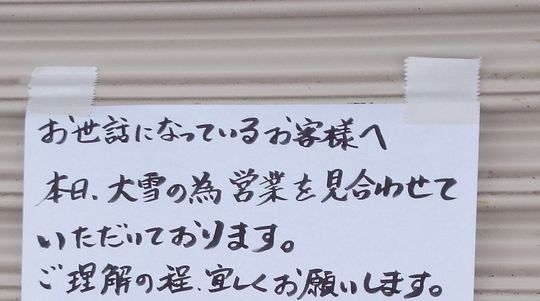 お世話になっているお客様へ
本日、大雪の為営業を見合わせて
いただいております。
ご理解の程、宜しくお願いします。